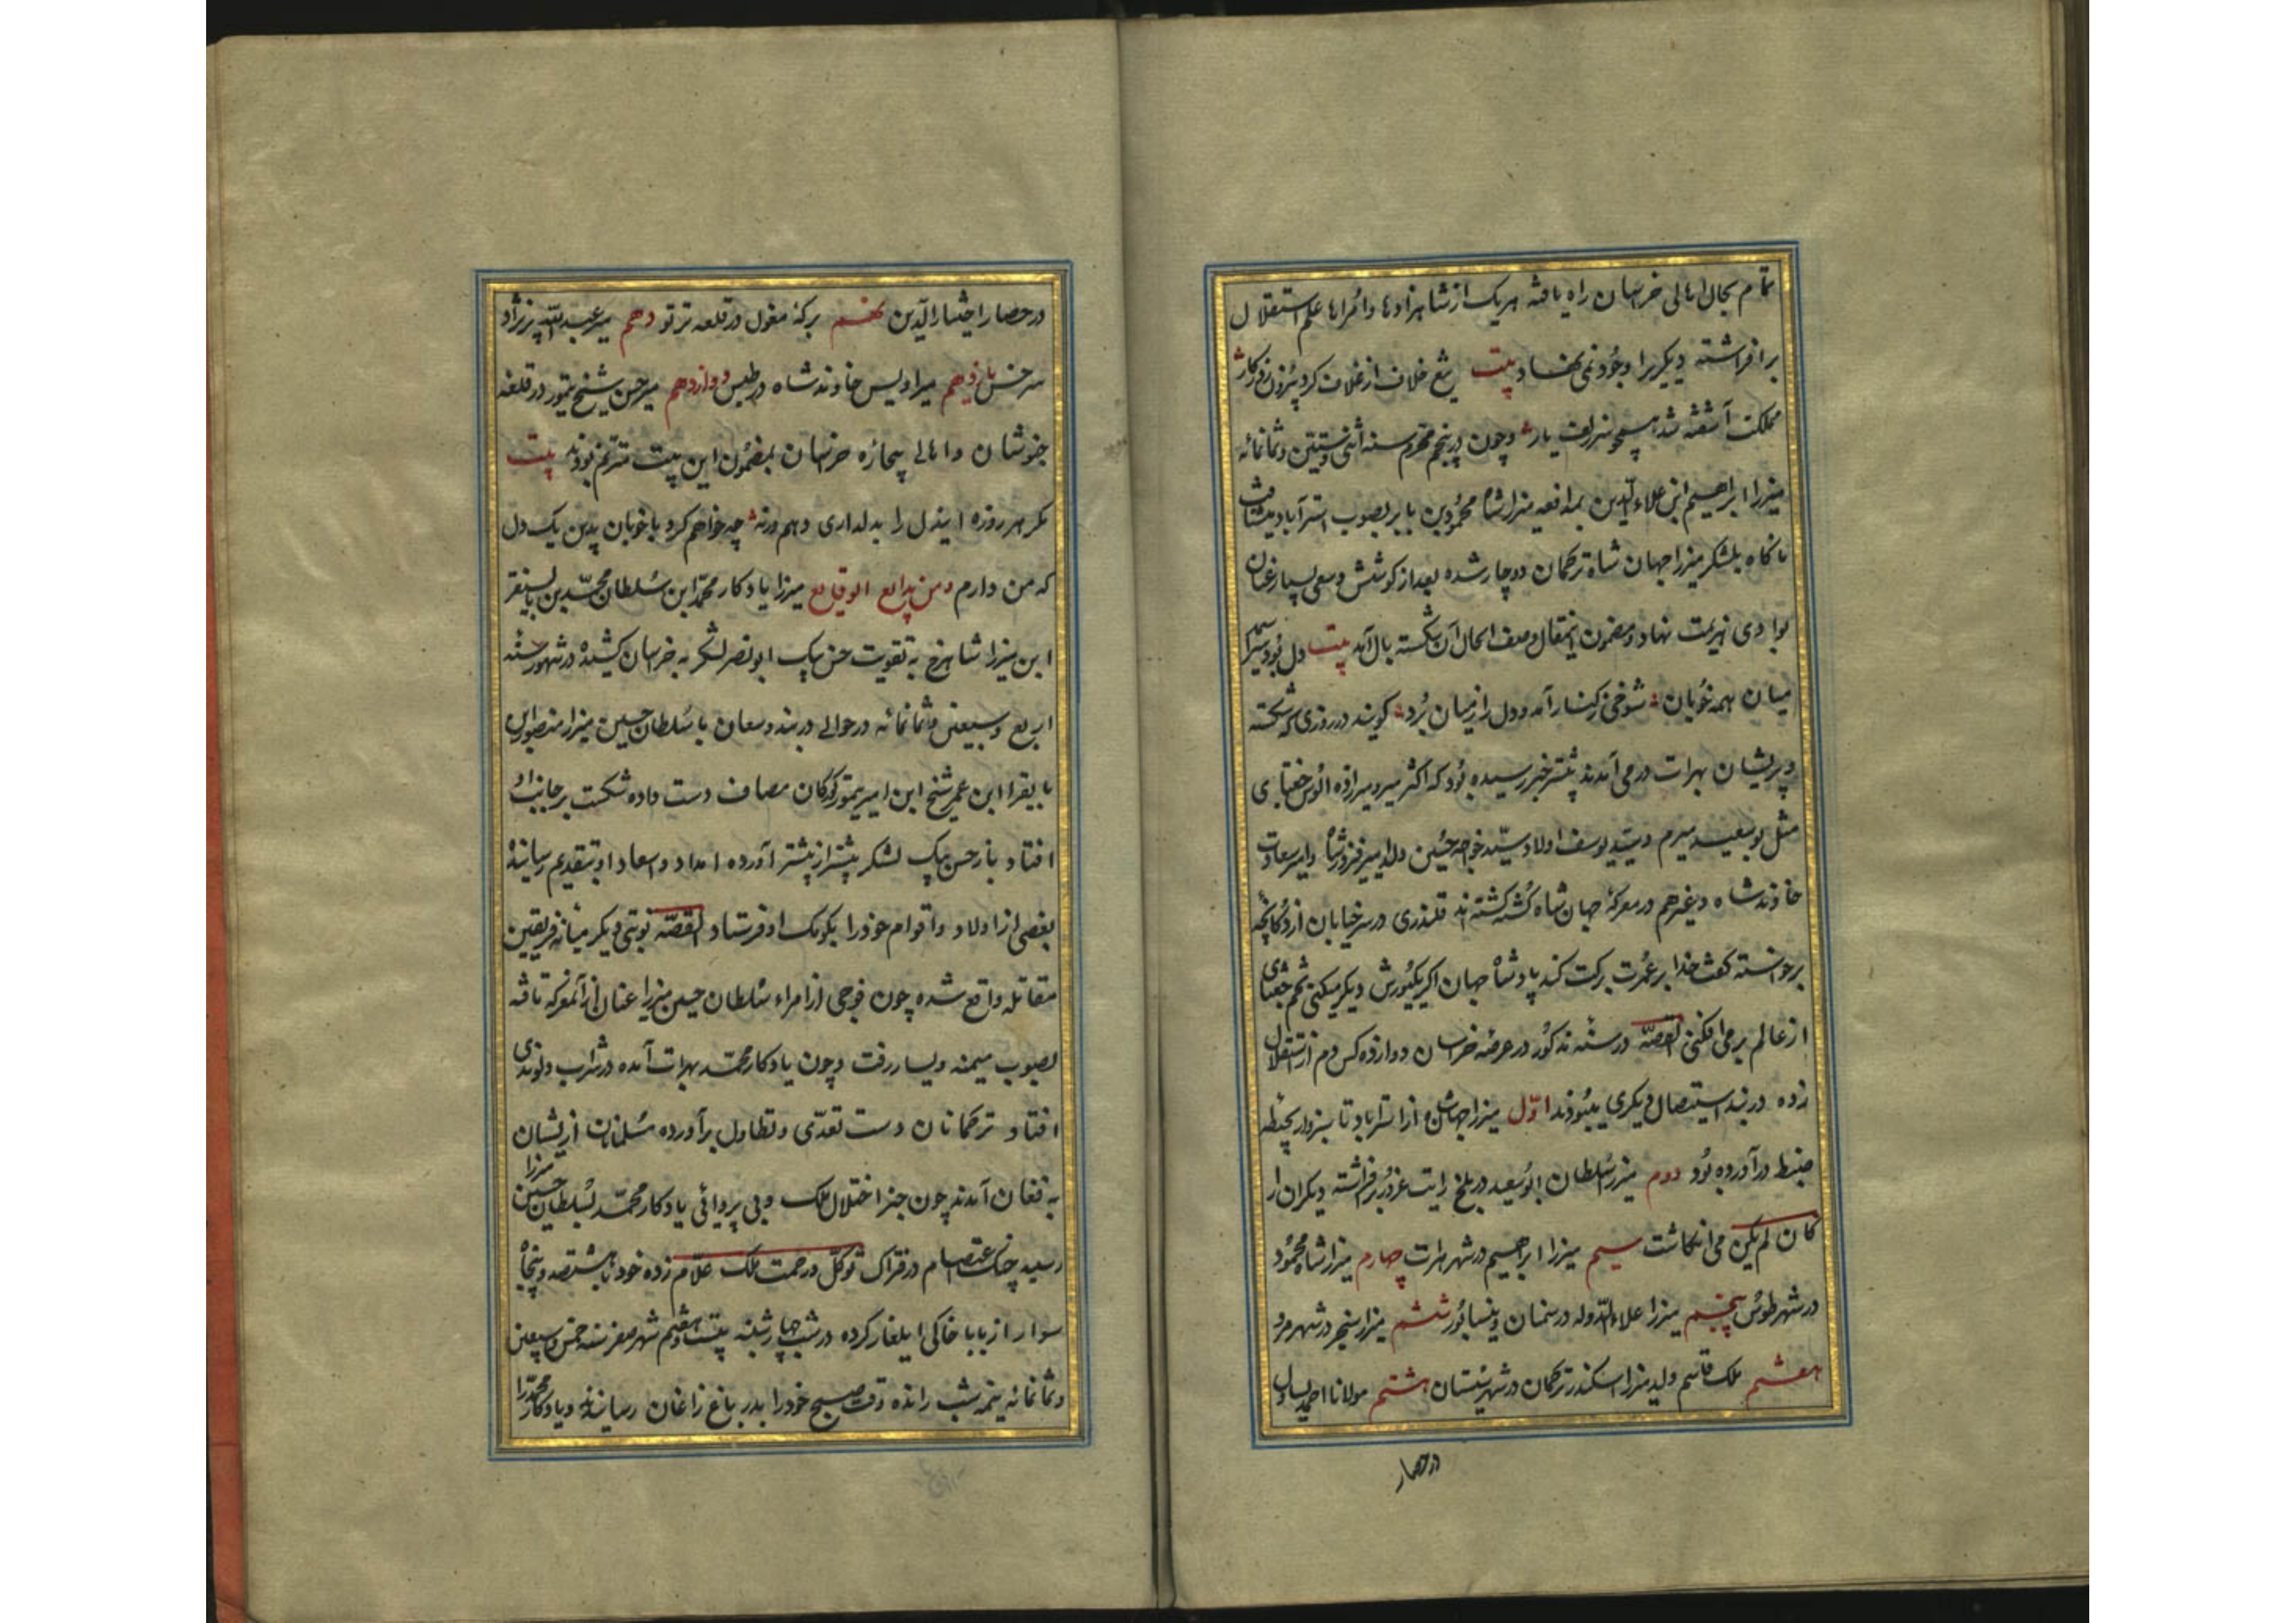 تمام بحال اهالی خراسان راه یافته هریک از شاهزادها و امراها علم استقلال
برافراشته دیگریرا وجود نمی نهاد بیت تیغ خلاف از غلاف کرد برون روزکار
مملکت آشفته شد همچو سر زلف یار وچون در پنجم محرم سنه اثنی وستین وثمانمائه
میرزا ابراهیم ابن علاء الدین بمدافعه میرزا شاه محمود بن بابر بصوب استرآباد میشتافت
ناکاه بلشکر میرزا جهان شاه ترکمان دوچار شده بعد از کوشش وسعی بسیار عنان
بوادی هزیمت نهاد ومضمون اینمقال وصف الحال آن شکسته بال آمد بیت دل بود
میان همه خوبان شوخی ز کنار آمد ودل را ز میان برد کویند در روزی که شکسته
وپریشان بهرات در می آمدند پیشتر خبر رسیده بود که اکثر میر ومیرزاده الوس جغتای
مثل بوسعید میرم وسید یوسف اولاد سید خواجه حسین ولد امیر فیروزشاه وامیر سعادت
خاوندشاه وغیرهم در معرکه جهان شاه کشته کشته اند قلندری در سر خیابان از دکانچه
برخواسته کفت خدا بر عمرت برکت کند پادشاه جهان اکر یکیورش دیکر میکنی تخم جغتای
از عالم برمی افکنی القصّه در سنه مذکور در عرصه خراسان دوازده کس دم از استقلال
زده در بند استیصال دیکری میبودند اوّل میرزا جهانشاه از استراباد تا سبزوار بحیطه
ضبط درآورده بود دوم میرزا سلطان ابوسعید در بلخ رایت غرور برافراشته دیکران را
کان لم یکن می انکاشت سیم میرزا ابراهیم در شهر هرات چهارم میرزا شاه محمود
در شهر طوس پنجم میرزا علاء الدوله در سمنان ونیسابور ششم میرزا سنجر در شهر مرو
هفتم ملک قاسم ولد میرزا اسکندر ترکمان در شهر سیستان هشتم مولانا احمد یساول
در حصار
در حصار اختیار الدّین نهم برکه مغول در قلعه ترتو دهم میر عبد الله پیرزاد
سرخس یازدهم میر اویس خاوندشاه در طبس دوازدهم میر حسن شیخ تیمور در قلعه
خوشان واهالی بیچاره خراسان بمضمون این بیت مترنم بودند بیت
مکر هر روزه ایندل را بدلداری دهم ورنه چه خواهم کرد با خوبان بدین یک دل
که من دارم ومن بدایع الوقایع میرزا یادکار محمّد ابن سلطان محمّد بن بایسنقر
ابن میرزا شاهرخ به تقویت حسن بیک ابو نصر لشکر به خراسان کشیده در شهور سنه
اربع وسبیعن وثمانمائه در حوالی دربند وسعان با سلطان حسین میرزا منصور ابن
بایقرا ابن عمر شیخ ابن امیر تیمور کورکان مصاف دست داده شکست بر جانب او
افتاد باز حسن بیک لشکر بیشتر از پیشتر آورده امداد واسعاد او بتقدیم رسانیده
بعضی از اولاد واقوام خود را بکومک او فرستاد القصّه نوبتی دیکر میانه فریقین
مقاتله واقع شده چون فوجی از امراء سلطان حسین میرزا عنان از آنمعرکه تافته
بصوب میمنه ویسار رفت وچون یادکار محمّد بهرات آمده در شراب ولوندی
افتاد ترکمانان دست تعدّی وتطاول برآورده مسلمانان از یشان
به فغان آمدند چون خبر اختلال ملک وبی پروائی یادکار محمّد بسلطان حسین میرزا
رسید چنک اعتصام در فتراک توکّل ورحمت ملک علّام زده خود با هشتصد وپنجاه
سوار از بابا خاکی ایلغار کرده در شب چهارشنبه بیست وهفتم شهر صفر سنه خمس وسبعین
وثمانمائه نیمه شب رانده وقت صبح خود را بدر باغ زاغان رسانیدند ویادکار محمّد را